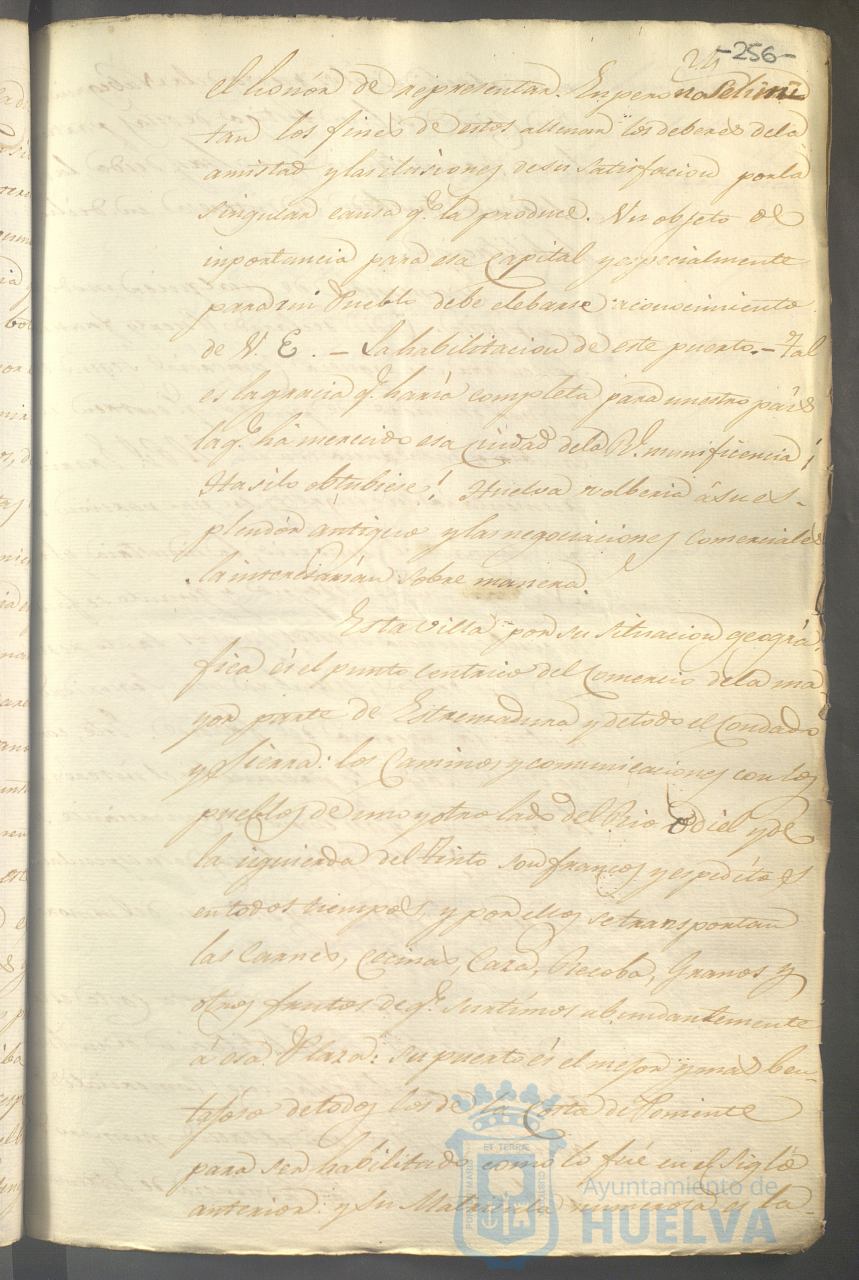 24 -256-
el honór de representar. Enpero no se limi
tan los fines de estos a llenar los deberes dela
amistad y las ilusiones de su satisfacion por la
singular causa q.e la produce. Un objeto de
inportancia para esa Capital y especialmente
para mi Pueblo debe elebarse a conocimiento
de V. E. – La habilitacion de este puerto. – Tal
es la gracia q.e haría completa para nuestro país
la q.e há merecido esa Ciudad dela R.l munificencia ¡
Ha si lo obtubiese! Huelva volberia á su es-
plendór antiguo y las negociaciones comerciales
la interesarían sobre manera.
Esta villa por su situacion geográ-
fica és el punto centrico del Comercio dela ma-
yor parte de Estremadura y de todo el Condado
y Sierra: los Caminos y comunicaciones con los
pueblos de uno y otro lado del Rio Odiel y de
la izquierda del Tinto son francos y espeditos
en todos tiempos, y por ellos se transportan
las Carnes, Cecinas, Caza, Recoba, Granos y
otros frutos de q.e surtimos abundantemente
á esa Plaza: su puerto és el mejor y mas ben-
tajoso de todos los de la Costa de Poniente
para ser habilitado como lo fué en el siglo
anterior: y su Matricula numerosa es la
PORTUS MARIS ET TERRÆ CUSTODIA
Ayuntamiento de
HUELVA